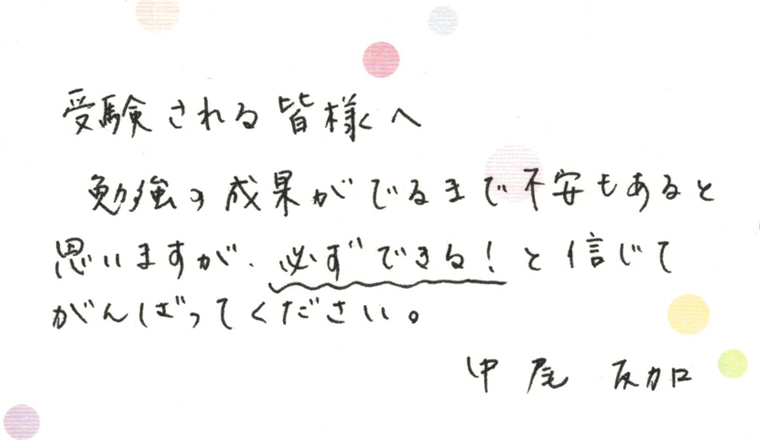 受験される皆様へ
勉強の成果がでるまで不安もあると
思いますが、必ずできる！と信じて
がんばってください。
中尾 友加